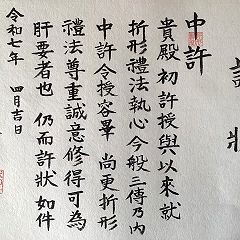 許状
中許
貴殿初許授與以來就
折形禮法執心今般三傳乃内
中許令授容畢 尚更折形
禮法尊重誠意修得可為
肝要者也 仍而許状如件
令和七年 四月吉日